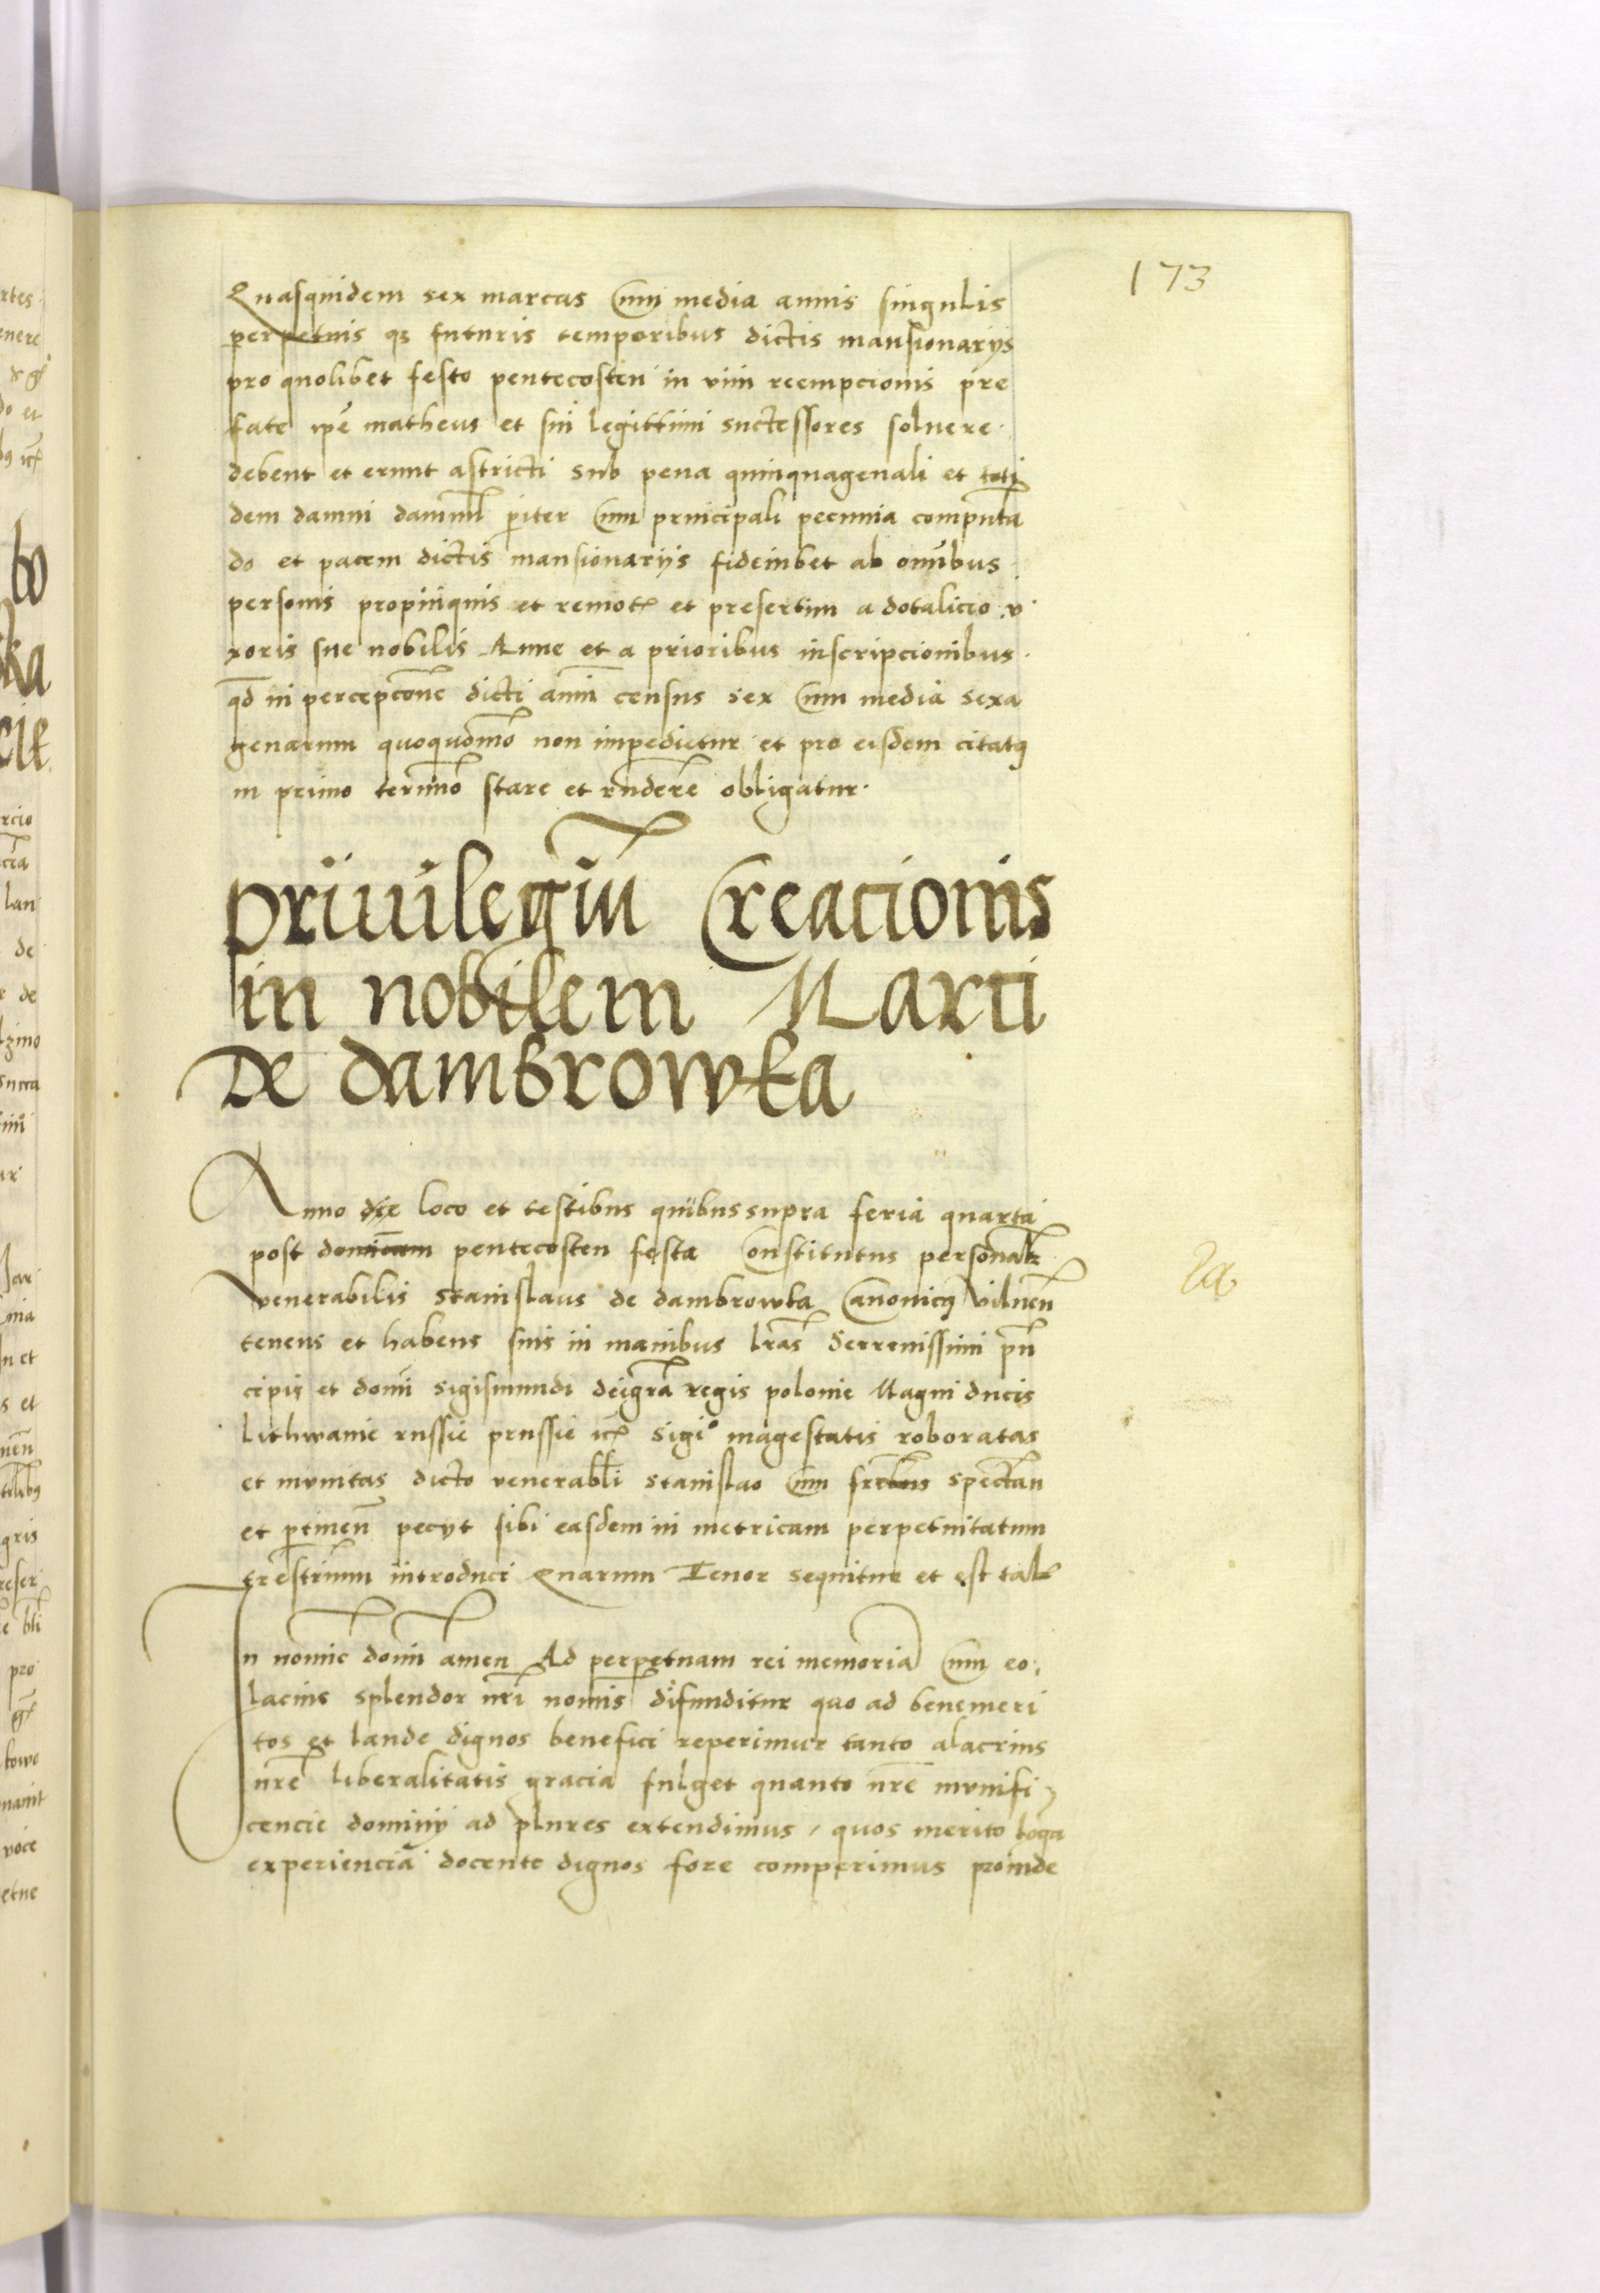 173
Quasquidem sex marcas cum media annis singulis
perpetuis q3 futuris temporibus dictis mansionarijs
pro quolibet festo pentecosten in vim reempcionis pre
fate ipē matheus et sui legittimi suctessores soluere
debent et erunt astricti sub pena quinquagenali et toti
dem damni damnū pariter cum principali pecunia computā
do et pacem dictis mansionarijs fideiubet ab omībus
personis propinquis et remotꝭ et presertim a dotalicio v
xoris sue nobilis Anne et a prioribus inscripcionibus
qd in percepcōne dicti annī census sex cum media sexa
genarum quoquomō non impedietur et pro eisdem citatꝯ
in primo termīo stare et rūdere obligatur
priuilegiū Creacionis
in nobilem Marti
De dambrowka
Anno die loco et testibus quibus supra feria quarta
post dominicam pentecosten festa Constitutus personalr
venerabilis Stanislaus de dambrowka Canonicꝯ vilnen
tenens et habens suis in manibus lrās Serrenissimi prin
cipis et domī sigismundi dei grā regis polonie Magni ducis
Lithwanie russie prussie ꝛcꝭ sigio magestatis roboratas
et mvnitas dicto venerabli stanislao cum frībus spectan
et ptinen pecyt sibi easdem in metricam perpetuitatum
trēstrium introduci Quarum Tenor sequitur et est tal
In nomīe domī amen Ad perpetuam rei memoriā Cum eo
lacius splendor nrī nomīs difunditur quo ad benemeri
tos et laude dignos benefici reperimur tanto alacrius
nrē liberalitatis gracia fulget quanto nrē mvnifi
cencie dominij ad plures extendimus, quos merito loga
experiencia docente dignos fore comperimus proinde